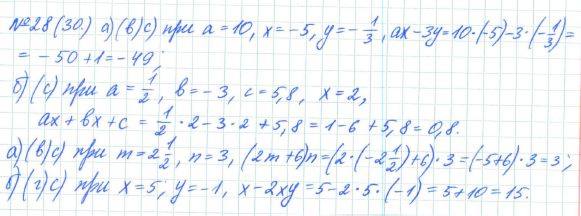 №28(30.) а)(в)с) при a = 10, x = -5, y = -1/3, ax - 3y = 10·(-5) - 3·(-1/3) =
= -50 + 1 = -49;
б)(с) при a = 1/2, в = -3, c = 5,8, x = 2,
ax + вx + c = 1/2 · 2 - 3 · 2 + 5,8 = 1 - 6 + 5,8 = 0,8.
а)(в)с) при m = 2 1/2, n = 3, (2m + 6)n = (2·(-2 1/2) + 6)·3 = (-5 + 6)·3 = 3;
б)(г)с) при x = 5, y = -1, x - 2xy = 5 - 2·5·(-1) = 5 + 10 = 15.